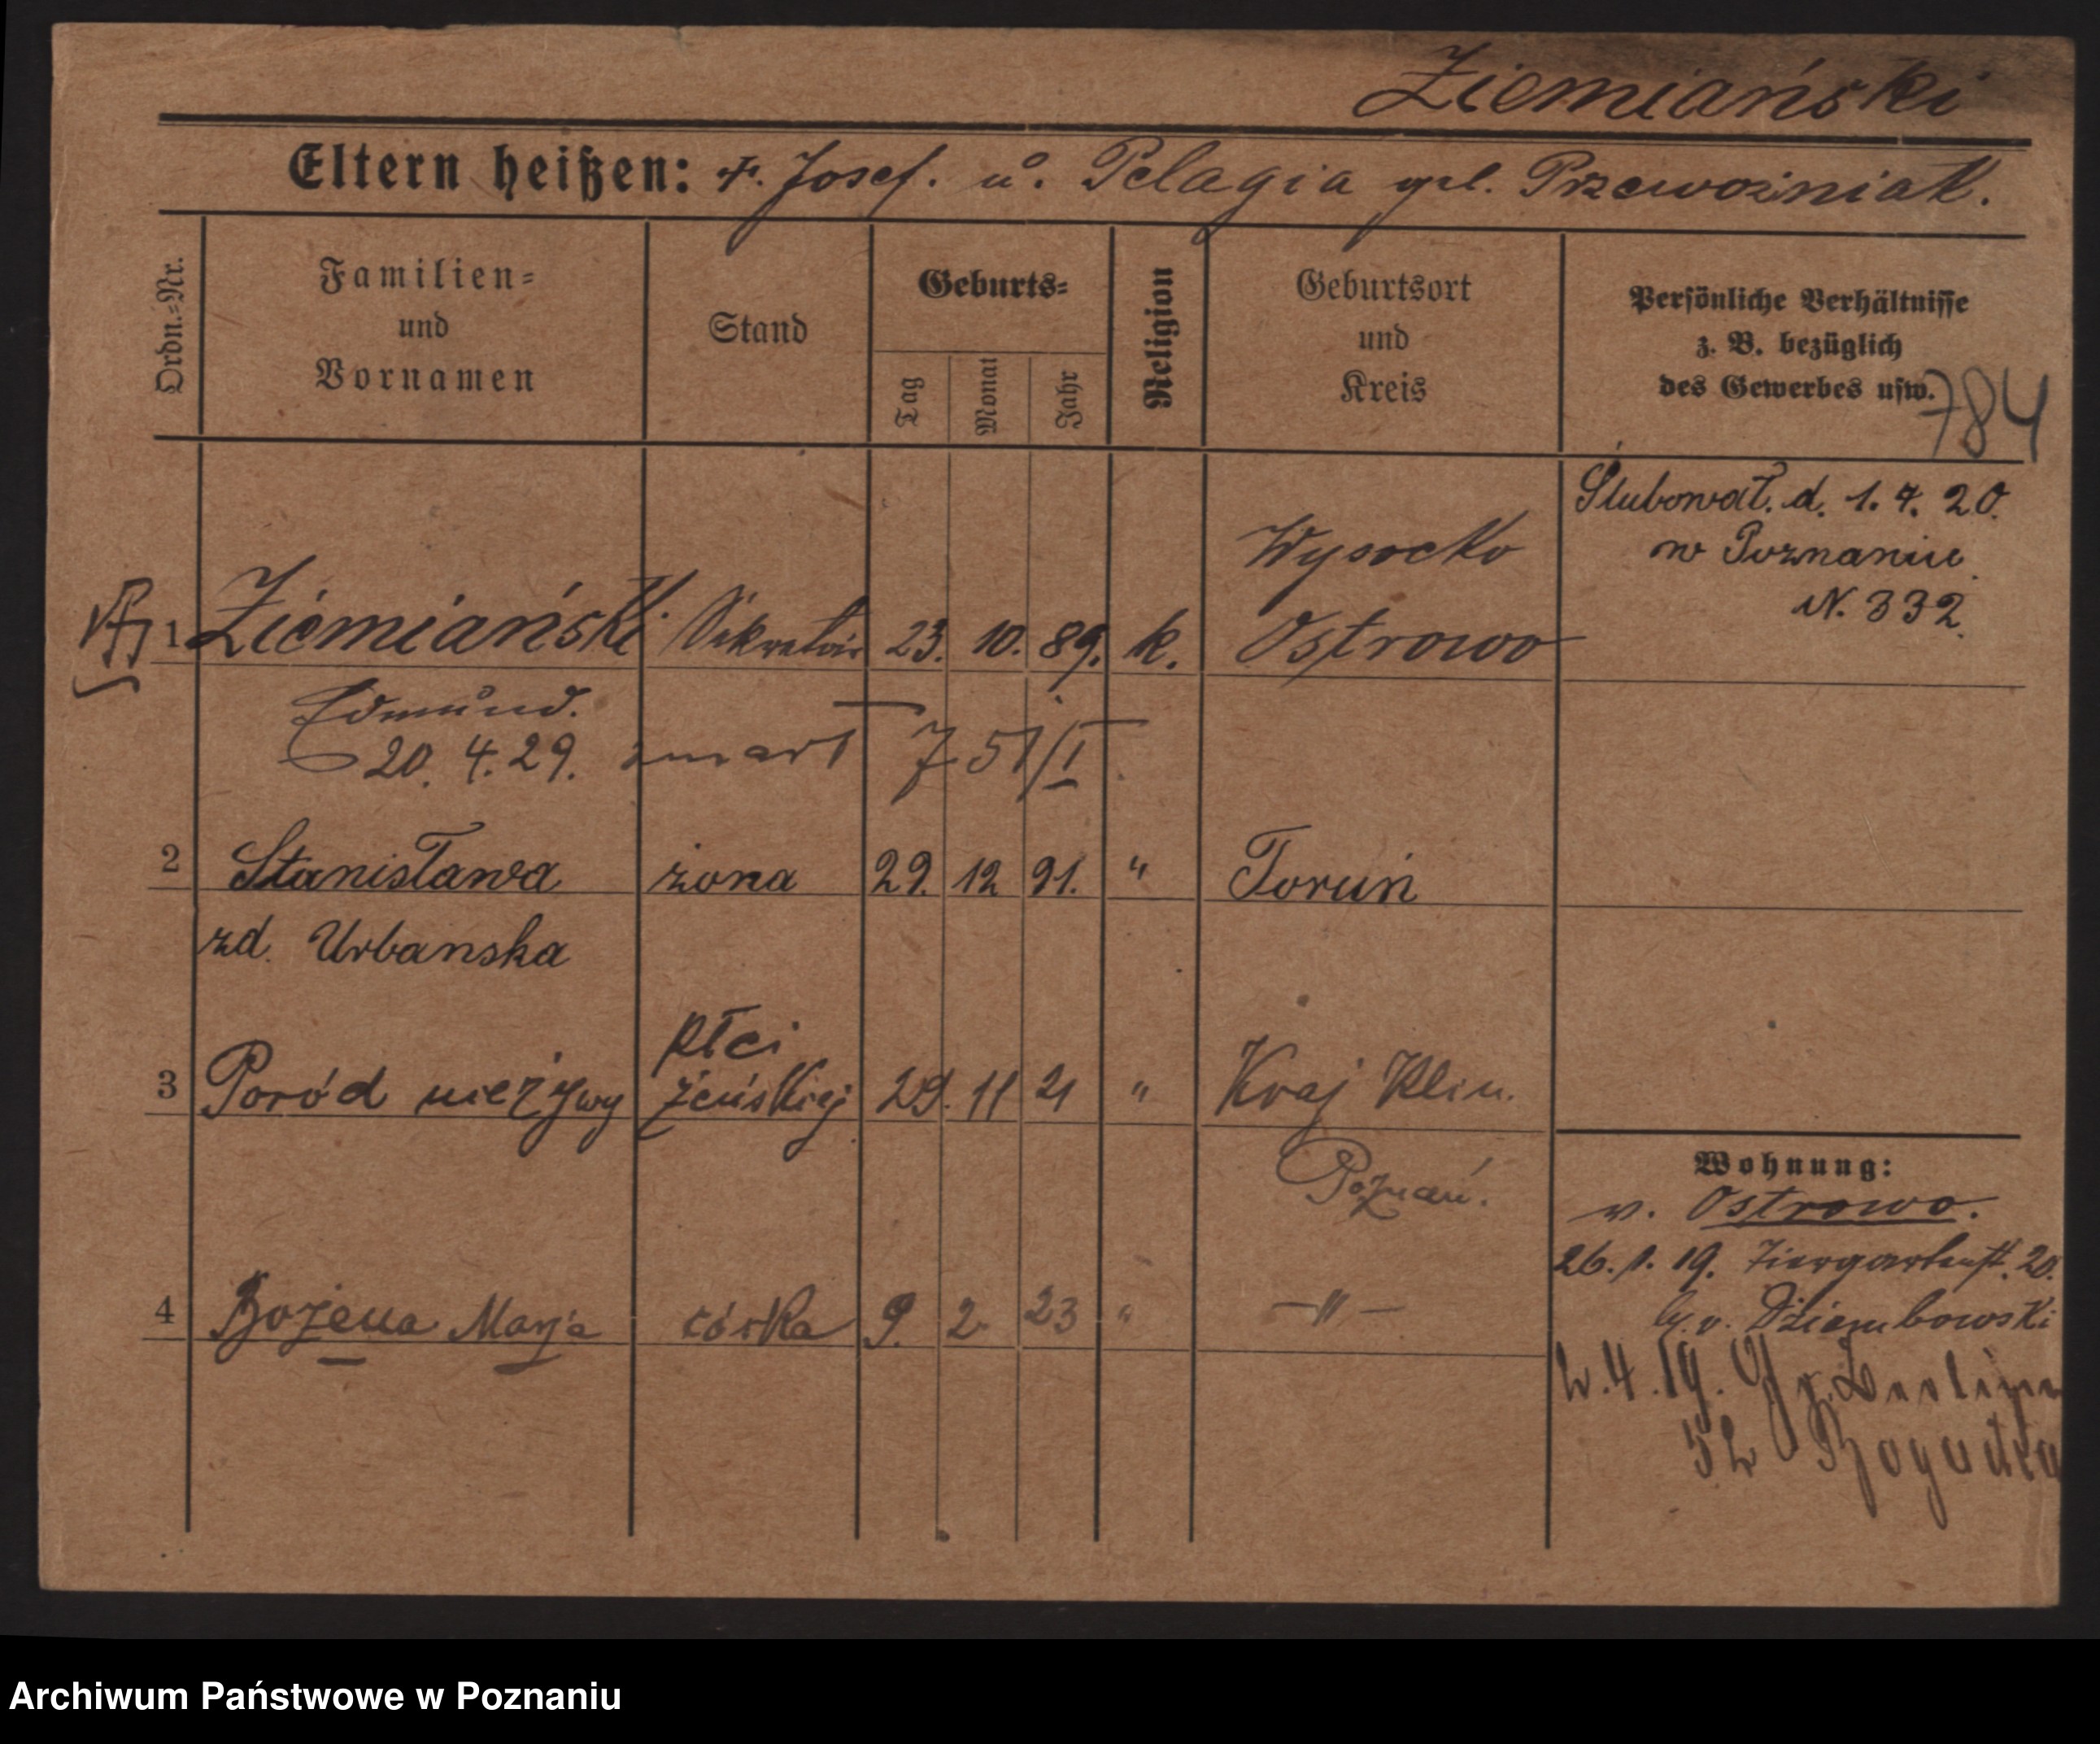 Ziemiański
Eltern heißen: Josef. u. Pelagia geb. Przewoźniak.
Ordn.-Nr.
Familien-
und
Vornamen
Stand
Geburts-
Tag
Monat
Jahr
Religion
Geburtsort
und
Kreis
Persönliche Verhältnisse
z. B. bezüglich
des Gewerbes usw.
784
Ślubował. d. 1. 7. 20.
w Poznaniu
N. 332.
Wysocko
1 Ziemiański Sekretär 23. 10. 89. k. Ostrowo
Edmund.
20. 4. 29. zmarł 751/I
2 Stanisława żona 29. 12 91. " Toruń
zd. Urbanska
płci
3 Poród nieżywy żeńskiej 29. 11 21 " Kraj Klin.
Poznań.
4 Bożena Marja córka 9. 2 23 " -"-
Wohnung:
v. Ostrowo.
26. 1. 19. Tiergartenst. 20.
b. v. Dziembowski
2.4.19. Gr. Berliner
52
Archiwum Państwowe w Poznaniu